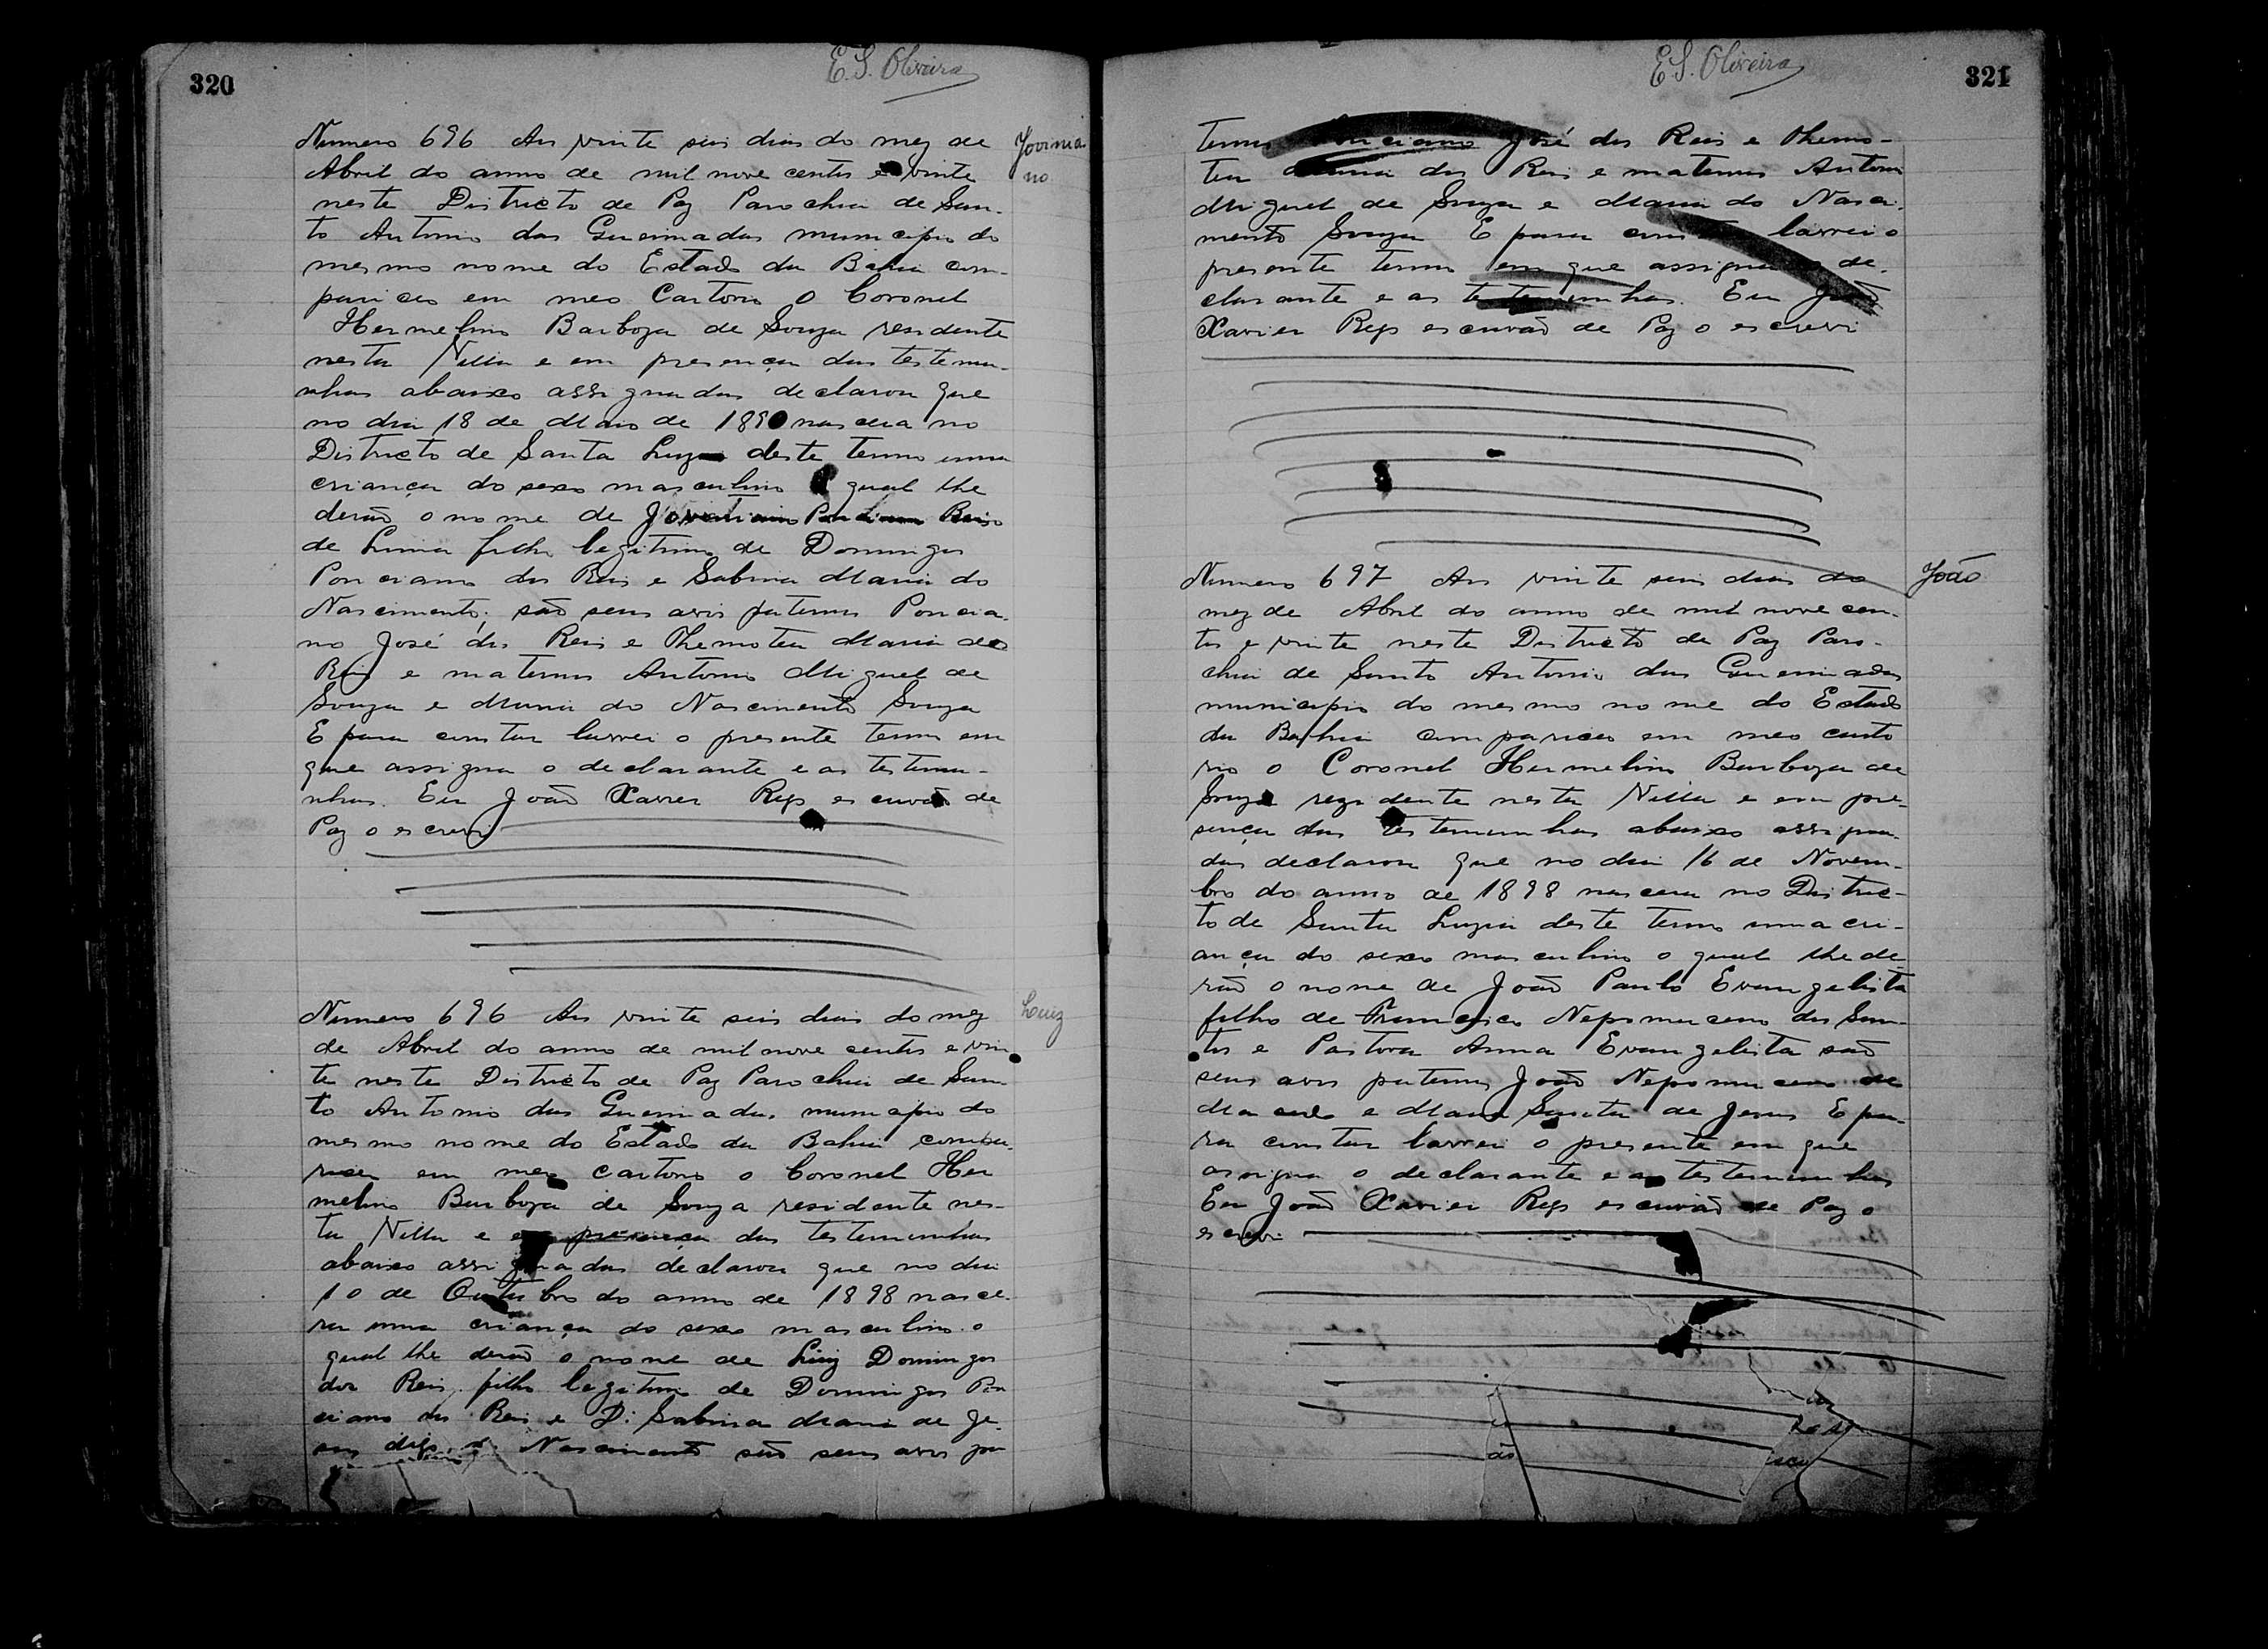 320
E. S. Oliveira
Numero 696 Aos vinte seis dias do mez de
Jovinia
no
Abril do anno de mil nove centos e vinte
neste Districto de Paz Parochia de San-
to Antonio das Queimadas municipio do
mesmo nome do Estado da Bahia com-
pariceo em meo Cartorio o Coronel
Hermelino Barboza de Souza residente
nesta Villa e em presença das testemu-
nhas abaixo assignadas declarou que
no dia 18 de Maio de 1890 nascera no
Districto de Santa Luzia deste termo uma
criança do sexo masculino qual lhe
derão o nome de
de Lima filho legitimo de Domingos
Ponciano dos Reis e Sabina Maria do
Nascimento; são seus avós paternos Poncia-
no José dos Reis e Themotea Maria dos
Reis e maternos Antonio Miguel de
Souza e Maria do Nascimento Souza
E para constar lavrei o presente termo em
que assigna o declarante e as testemu-
nhas. Eu João Xavier Reys escrivão de
Paz o escrevi
Numero 696 Aos vinte seis dias do mez
Luiz
de Abril do anno de mil nove centos e vin
te neste Districto de Paz Parochia de San
to Antonio das Queimadas municipio do
mesmo nome do Estado da Bahia compa-
riceu em meo cartorio o Coronel Her
melino Barboza de Souza residente nes-
ta Villa e em presença das testemunhas
abaixo assignadas declarou que no dia
10 de Outubro do anno de 1898 nasce-
ra uma criança do sexo masculino o
qual lhe derão o nome de Luiz Domingos
dos Reis, filho legitimo de Domingos Pon
ciano dos Reis e D. Sabina Maria de Je-
sus digo, Nascimento são seus avós pa
E. S. Oliveira
321
ternos Ponciano José dos Reis e Themo-
tea Maria dos Reis e maternos Antonio
Miguel de Souza e Maria do Nasci-
mento Souza E para constar lavrei o
presente termo em que assigna o de-
clarante e as testemunhas. Eu João
Xavier Reys escrivão de Paz o escrevi
Numero 697 Aos vinte seis dias do
João
mez de Abril do anno de mil nove cen-
tos e vinte neste Districto de Paz Paro-
chia de Santo Antonio das Queimadas
municipio do mesmo nome do Estado
da Bahia compariceo em meo carto
rio o Coronel Hermelino Barboza de
Souza rezidente nesta Villa e em pre-
sença das testemunhas abaixo assigna-
das declarou que no dia 16 de Novem-
bro do anno de 1898 nascera no Distric-
to de Santa Luzia deste termo uma cri-
ança do sexo masculino o qual lhe de-
rão o nome de João Paulo Evangelista
filho de Francisco Nepomuceno dos San-
tos e Pastora Anna Evangelista são
seus avós paternos João Nepomuceno de
Macedo e Maria Santa de Jesus E pa-
ra constar lavrei o presente em que
assigna o declarante e as testemunhas
Eu João Xavier Reys escrivão de Paz o
escrevi
ão